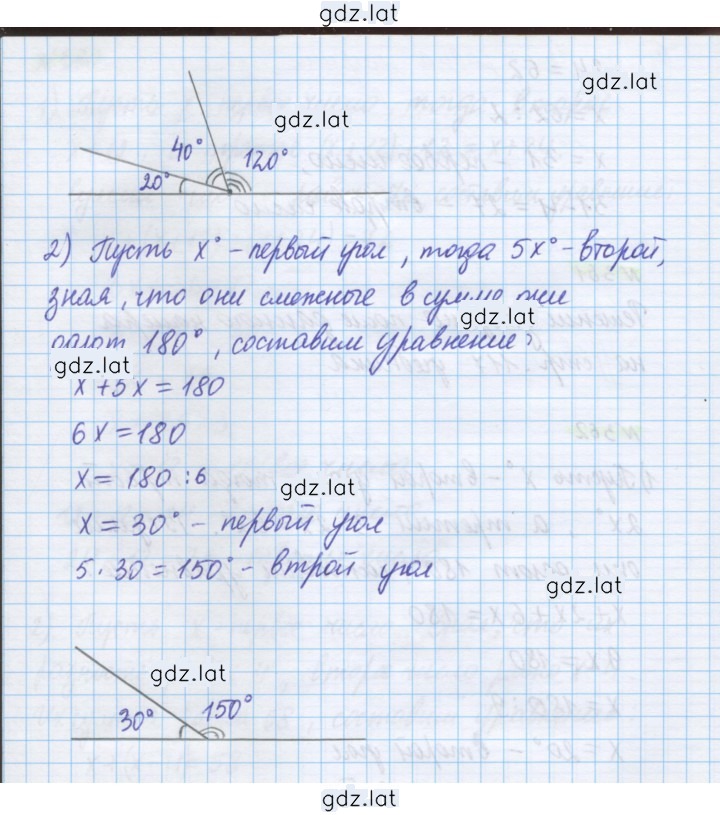 gdz.lat
gdz.lat
gdz.lat
40° 120°
20°
2) Пусть x° - первый угол, тогда 5x° - второй,
зная, что они смежные в сумме они
gdz.lat
дают 180°, составим уравнение:
gdz.lat
x + 5x = 180
6x = 180
x = 180 : 6
gdz.lat
x = 30° - первый угол
5 · 30 = 150° - втрой угол
gdz.lat
gdz.lat
30° 150°
gdz.lat